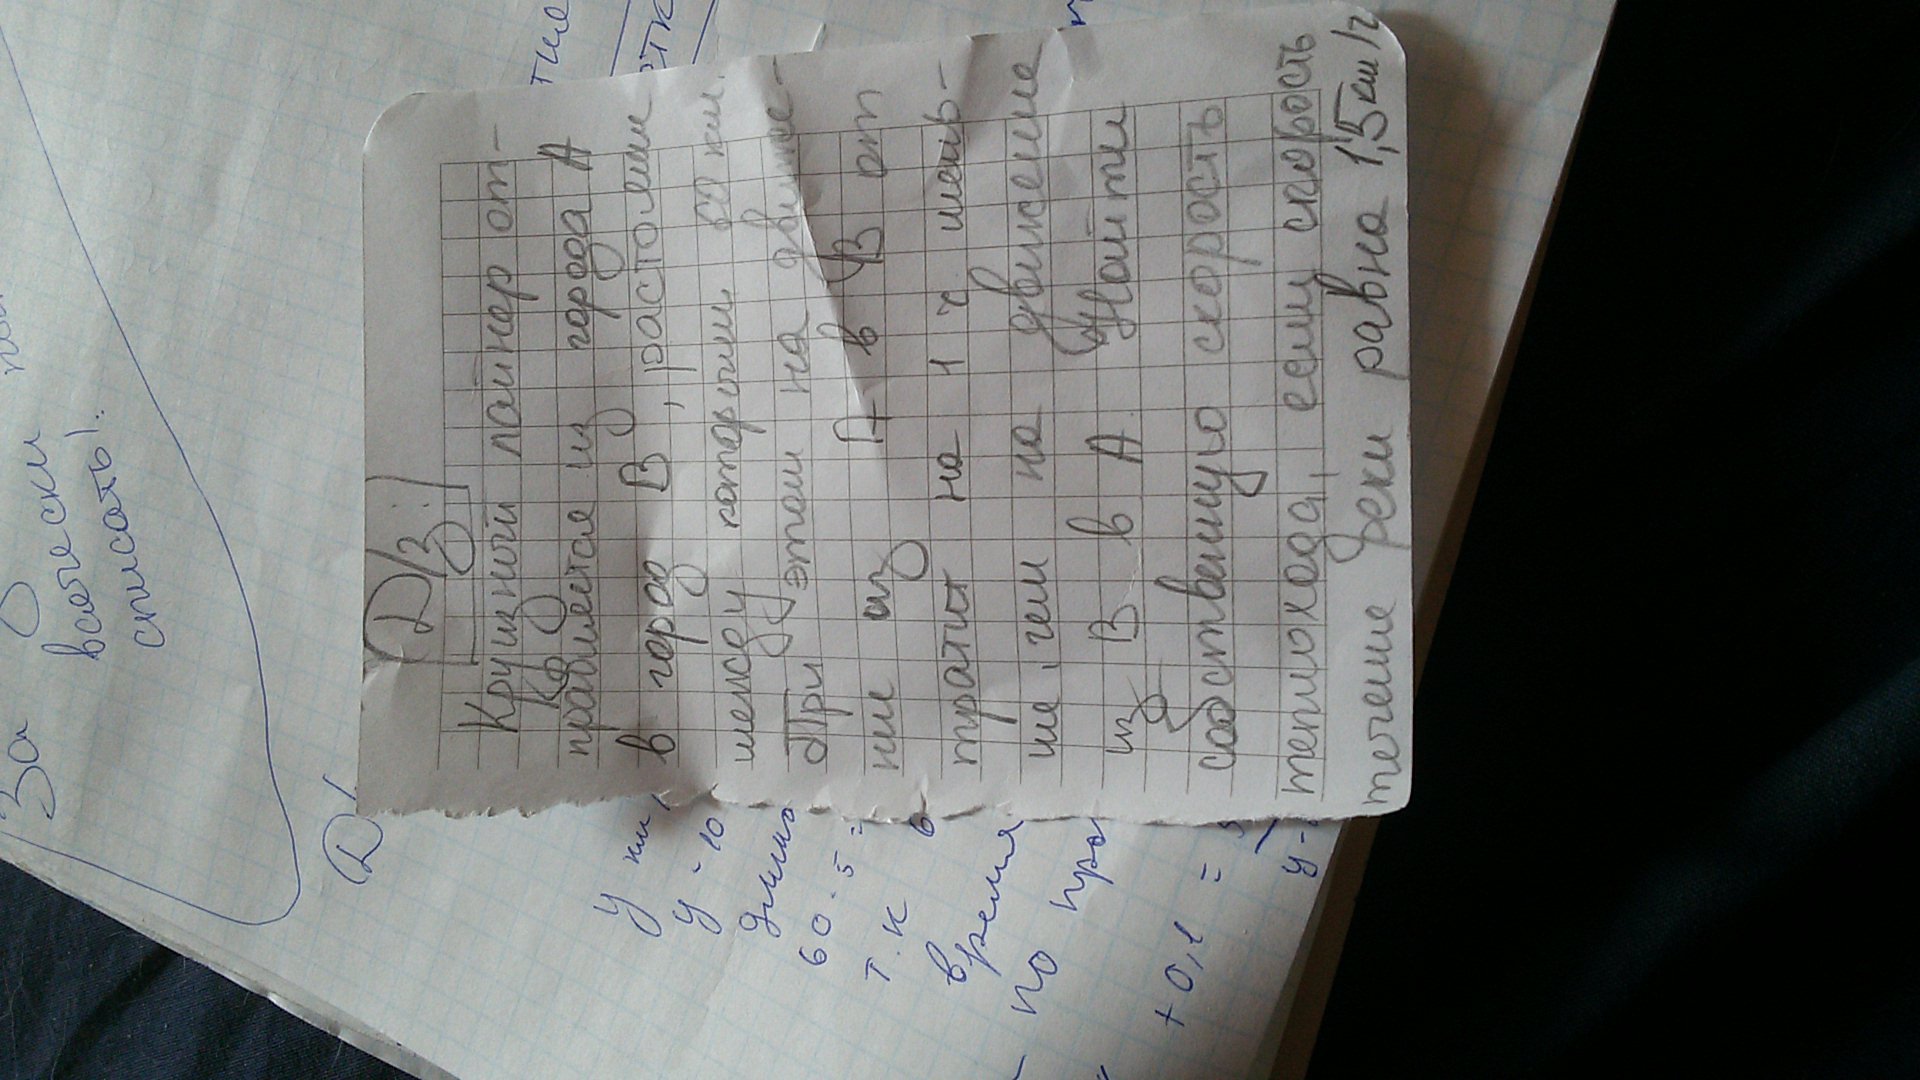 Д/з:
Круизный лайнер от-
правляется из города А
в город В, растояние
между которыми км.
При этом на движе-
ние из А в В он
тратит на 1 ч мень-
ше, чем на движение
из В в А. Найти
собственную скорость
теплохода, если скорость
течение реки равна 1,5 км/ч
За
списать!
Д/
у км
у - 10
60 · 5 =
т. к
время
по
+ 0,1 =
у -